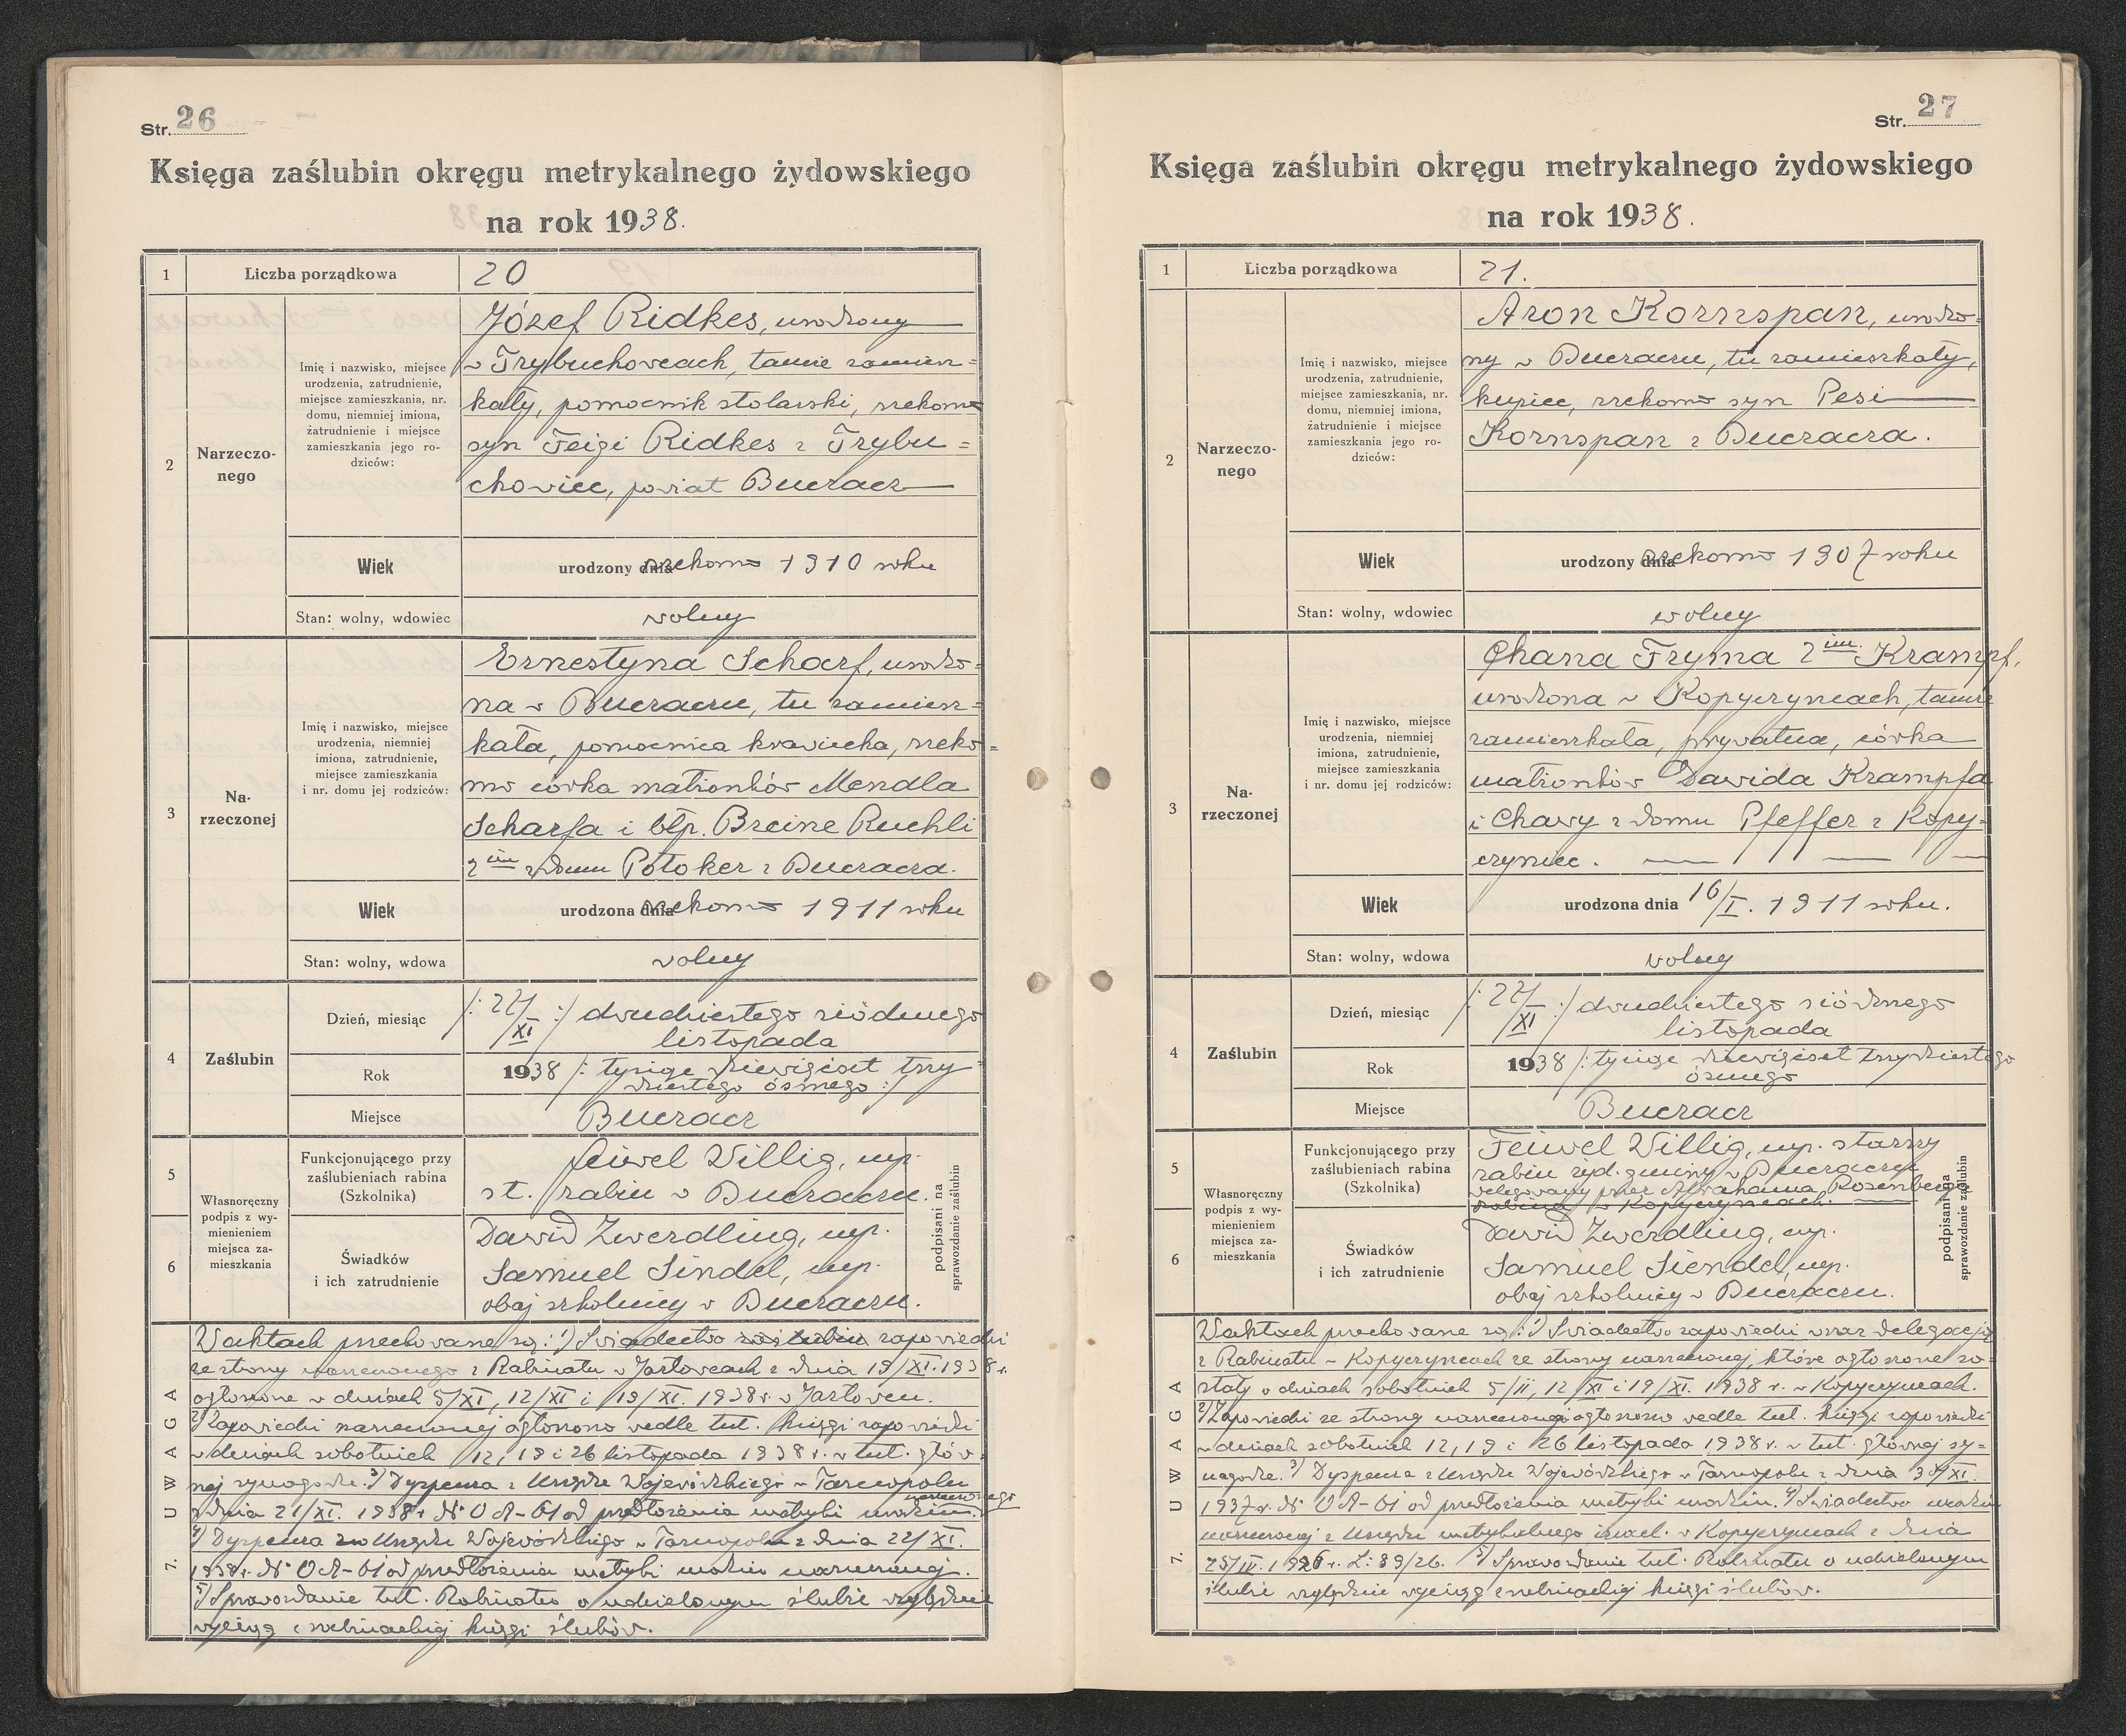 Str. 26
Księga zaślubin okręgu metrykalnego żydowskiego
na rok 1938.
1 Liczba porządkowa 20
2 Narzeczo-
nego
Imię i nazwisko, miejsce
urodzenia, zatrudnienie,
miejsce zamieszkania, nr.
domu, niemniej imiona,
zatrudnienie i miejsce
zamieszkania jego ro-
dziców:
Józef Ridkes, urodzony
w Trybuchowcach, tamże zamiesz=
kały, pomocnik stolarski, rzekomo
syn Feigi Ridkes z Trybu=
chowiec, powiat Buczacz
Wiek urodzony dnia rzekomo 1910 roku
Stan: wolny, wdowiec wolny
3 Na-
rzeczonej
Imię i nazwisko, miejsce
urodzenia, niemniej
imiona, zatrudnienie,
miejsce zamieszkania
i nr. domu jej rodziców:
Ernestyna Scharf, urodzo=
na w Buczaczu, tu zamiesz=
kała, pomocnica krawiecka, rzeko=
mo córka małżonków Mendla
Scharfa i błp. Breine Ruchli
2 im z domu Potoker z Buczacza.
Wiek urodzona dnia rzekomo 1911 roku
Stan: wolny, wdowa wolny
4 Zaślubin
Dzień, miesiąc /: 27/XI :/ dwudziestego siódmego
listopada
Rok 1938 /: tysiąc dziewięćset trzy=
dziestego ósmego :/
Miejsce Buczacz
5 Własnoręczny
podpis z wy-
mienieniem
miejsca za-
mieszkania
Funkcjonującego przy
zaślubieniach rabina
(Szkolnika)
Feiwel Willig, mp.
st. rabin w Buczaczu.
6 Świadków
i ich zatrudnienie
Dawid Zwerdling, mp.
Samuel Sindel, mp.
obaj szkolnicy w Buczaczu.
podpisani na
sprawozdanie zaślubin
7. UWAGA
W aktach przechowane są: 1) Świadectwo zapowiedzi
ze strony narzeczonego z Rabinatu w Jazłowcach z dnia 19/XI. 1938 r.
ogłoszone w dniach 5/XI, 12/XI i 19/XI. 1938 r. w Jazłowcu.
2) Zapowiedzi narzeczonej ogłoszono wedle tut. księgi zapowiedzi
w dniach sobotnich 12, 19 i 26 listopada 1938 r. w tut. głów=
nej synagodze. 3) Dyspensa z Urzędu Wojewódzkiego w Tarnopolu
z dnia 21/XI. 1938 r. Nr O A-61 od przedłożenia metryki urodzin narzeczonego.
4) Dyspensa z Urzędu Wojewódzkiego w Tarnopolu z dnia 22/XI.
1938 r. Nr O A-61 od przedłożenia metryki urodzin narzeczonej.
5) Sprawozdanie tut. Rabinatu o udzielonym ślubie względnie
wyciąg z rabinackiej księgi ślubów.
Str. 27
Księga zaślubin okręgu metrykalnego żydowskiego
na rok 1938.
1 Liczba porządkowa 21.
2 Narzeczo-
nego
Imię i nazwisko, miejsce
urodzenia, zatrudnienie,
miejsce zamieszkania, nr.
domu, niemniej imiona,
zatrudnienie i miejsce
zamieszkania jego ro-
dziców:
Aron Kornspan, urodzo=
ny w Buczaczu, tu zamieszkały,
kupiec, rzekomo syn Pesi
Kornspan z Buczacza.
Wiek urodzony dnia rzekomo 1907 roku
Stan: wolny, wdowiec wolny
3 Na-
rzeczonej
Imię i nazwisko, miejsce
urodzenia, niemniej
imiona, zatrudnienie,
miejsce zamieszkania
i nr. domu jej rodziców:
Chana Fryma 2 im. Krampf,
urodzona w Kopyczyńcach, tamże
zamieszkała, prywatna, córka
małżonków Dawida Krampfa
i Chawy z domu Pfeffer z Kopy=
czyniec.
Wiek urodzona dnia 16/I. 1911 roku.
Stan: wolny, wdowa wolny
4 Zaślubin
Dzień, miesiąc /: 27/XI :/ dwudziestego siódmego
listopada
Rok 1938 /: tysiąc dziewięćset trzydziestego
ósmego
Miejsce Buczacz
5 Własnoręczny
podpis z wy-
mienieniem
miejsca za-
mieszkania
Funkcjonującego przy
zaślubieniach rabina
(Szkolnika)
Feiwel Willig, mp. starszy
rabin żyd. gminy w Buczaczu
delegowany przez Abrahama Rosenberga
rabina w Kopyczyńcach.
6 Świadków
i ich zatrudnienie
Dawid Zwerdling, mp.
Samuel Siendel, mp.
obaj szkolnicy w Buczaczu.
podpisani na
sprawozdanie zaślubin
7. UWAGA
W aktach przechowane są: 1) Świadectwo zapowiedzi wraz delegacją
z Rabinatu w Kopyczyńcach ze strony narzeczonej, które ogłoszone zo=
stały w dniach sobotnich 5/11, 12/XI i 19/XI. 1938 r. w Kopyczyńcach.
2) Zapowiedzi ze strony narzeczonego ogłoszono wedle tut. księgi zapowiedzi
w dniach sobotnich 12, 19 i 26 listopada 1938 r. w tut. głównej sy=
nagodze. 3) Dyspensa z Urzędu Wojewódzkiego w Tarnopolu z dnia 30/XI.
1937 r. Nr O A-61 od przedłożenia metryki urodzin. 4) Świadectwo urodzin
narzeczonej z Urzędu metrykalnego izrael. w Kopyczyńcach z dnia
25/IV. 1926 r. L: 89/26. 5) Sprawozdanie tut. Rabinatu o udzielonym
ślubie względnie wyciąg z rabinackiej księgi ślubów.